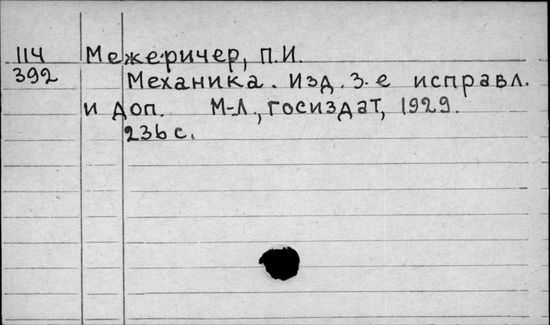 114 Межеричер, П.И.
392 Механика. Изд. 3-е исправл.
и доп. М-Л., госиздат, 1929.
236 с.